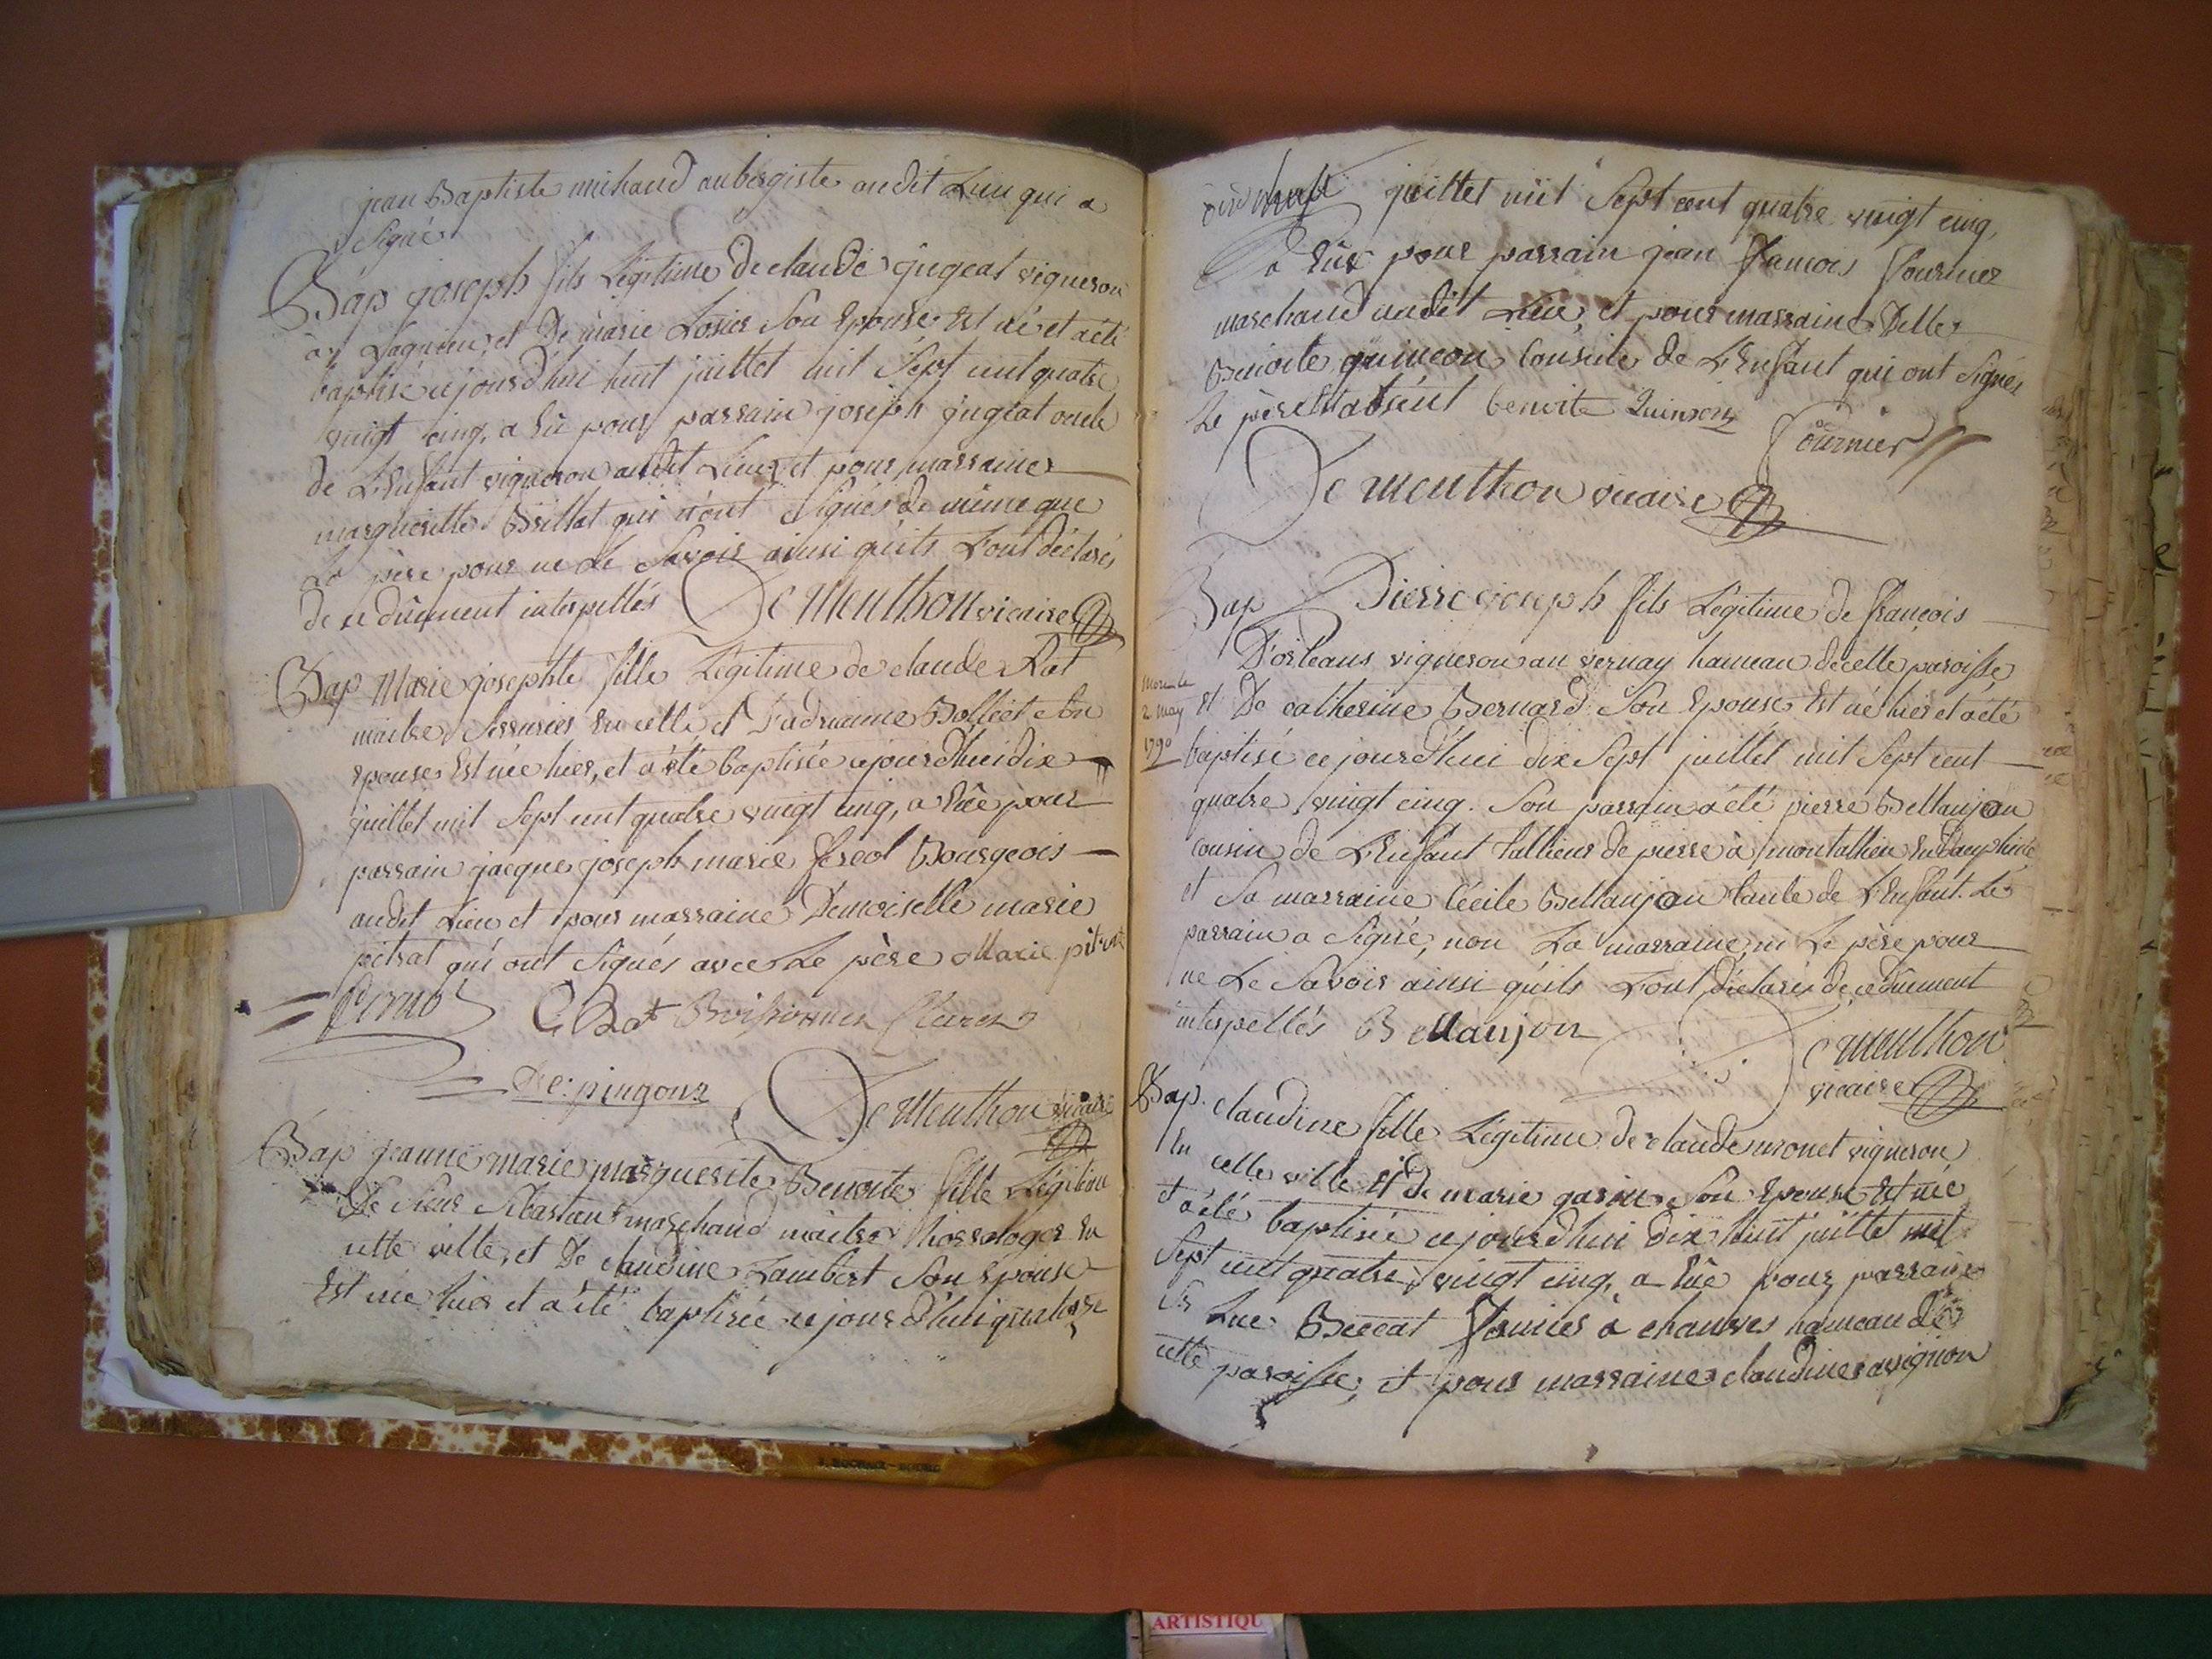 jean Baptiste michaud aubergiste audit Lieu qui a
Signé
Bap joseph fils Légitime de claude gugeat vigneron
à Lagnieu, et De marie Losier Son Epouse Est né et a été
baptisé cejourd'hui huit juillet mil Sept cent quatre
vingt cinq, a Eu pour parrain joseph gugeat oncle
de L'Enfant vigneron audit Lieu, et pour marraine
margueritte Brillat qui n'ont Signés de même que
Le père pour ne Le Savoir ainsi qu'ils L'ont déclarés
de ce dûement interpellés De Menthon vicaire
Bap Marie josephte fille Légitime de claude Rat
maitre Serrurier En cette et Son
epouse Est née hier, et a été baptisée cejourd'hui dix
juillet mil Sept cent quatre vingt cinq, a Eüe pour
parrain jacque joseph marie ferod Bourgeois
audit Lieu et pour marraine Demoiselle marie
pitrat qui ont Signés avec Le père Marie pitrat
C Rat
De pingon De Menthon vicaire
Bap jeanne marie marguerite Benoite fille Légitime
De Sieur Sébastien marchand maitre horrologer En
cette ville, et De claudine Lambert Son Epouse
Est née hier et a été baptisée cejourd'hui quatorze
juillet mil Sept cent quatre vingt cinq,
a Eüe pour parrain jean francois fournier
marchand audit Lieu, et pour marraine Delle
Benoite quincon Cousine de L'Enfant qui ont Signés
Le père Est absent benoite Quinson
fournier
De Menthon vicaire
Bap Pierre joseph fils Légitime de françois
D'orleans vigneron au vernay hameau de cette paroisse,
mort le
2 may
1790
Et De catherine Bernard Son Epouse Est né hier et a été
baptisé cejourd'hui dix Sept juillet mil Sept cent
quatre vingt cinq. Son parrain a été pierre Bellanjon
cousin de L'Enfant tallieur de pierre à montallieu En Dauphiné
et Sa marraine Cécile Bellanjon tante de L'Enfant. Le
parrain a Signé, non La marraine, ni Le père pour
ne Le Savoir ainsi qu'ils L'ont déclarés de ce dûement
interpellés Bellanjon De Menthon
vicaire
Bap. claudine fille Légitime de claude monet vigneron
En cette ville Et de marie garin Son Epouse Est née
et a été baptisée cejourd'hui dix huit juillet mil
Sept cent quatre vingt cinq, a Eüe pour parrain
Sr Luc Beccat fermier à chanves hameau de
cette paroisse, et pour marraine claudine ravignon
ARTISTIQU